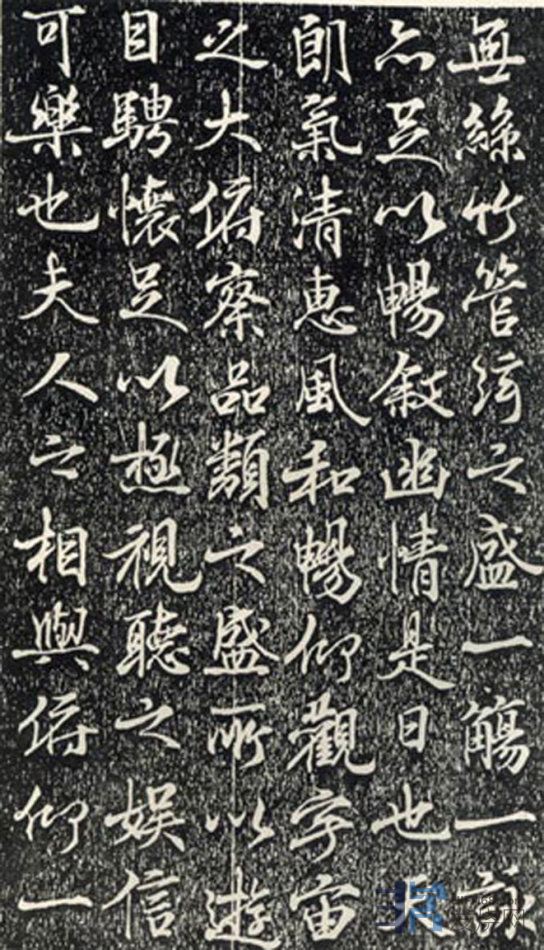 無絲竹管絃之盛一觴一詠
亦足以暢敘幽情是日也
朗氣清惠風和暢仰觀宇宙
之大俯察品類之盛所以遊
目騁懷足以極視聽之娛信
可樂也夫人之相與俯仰一